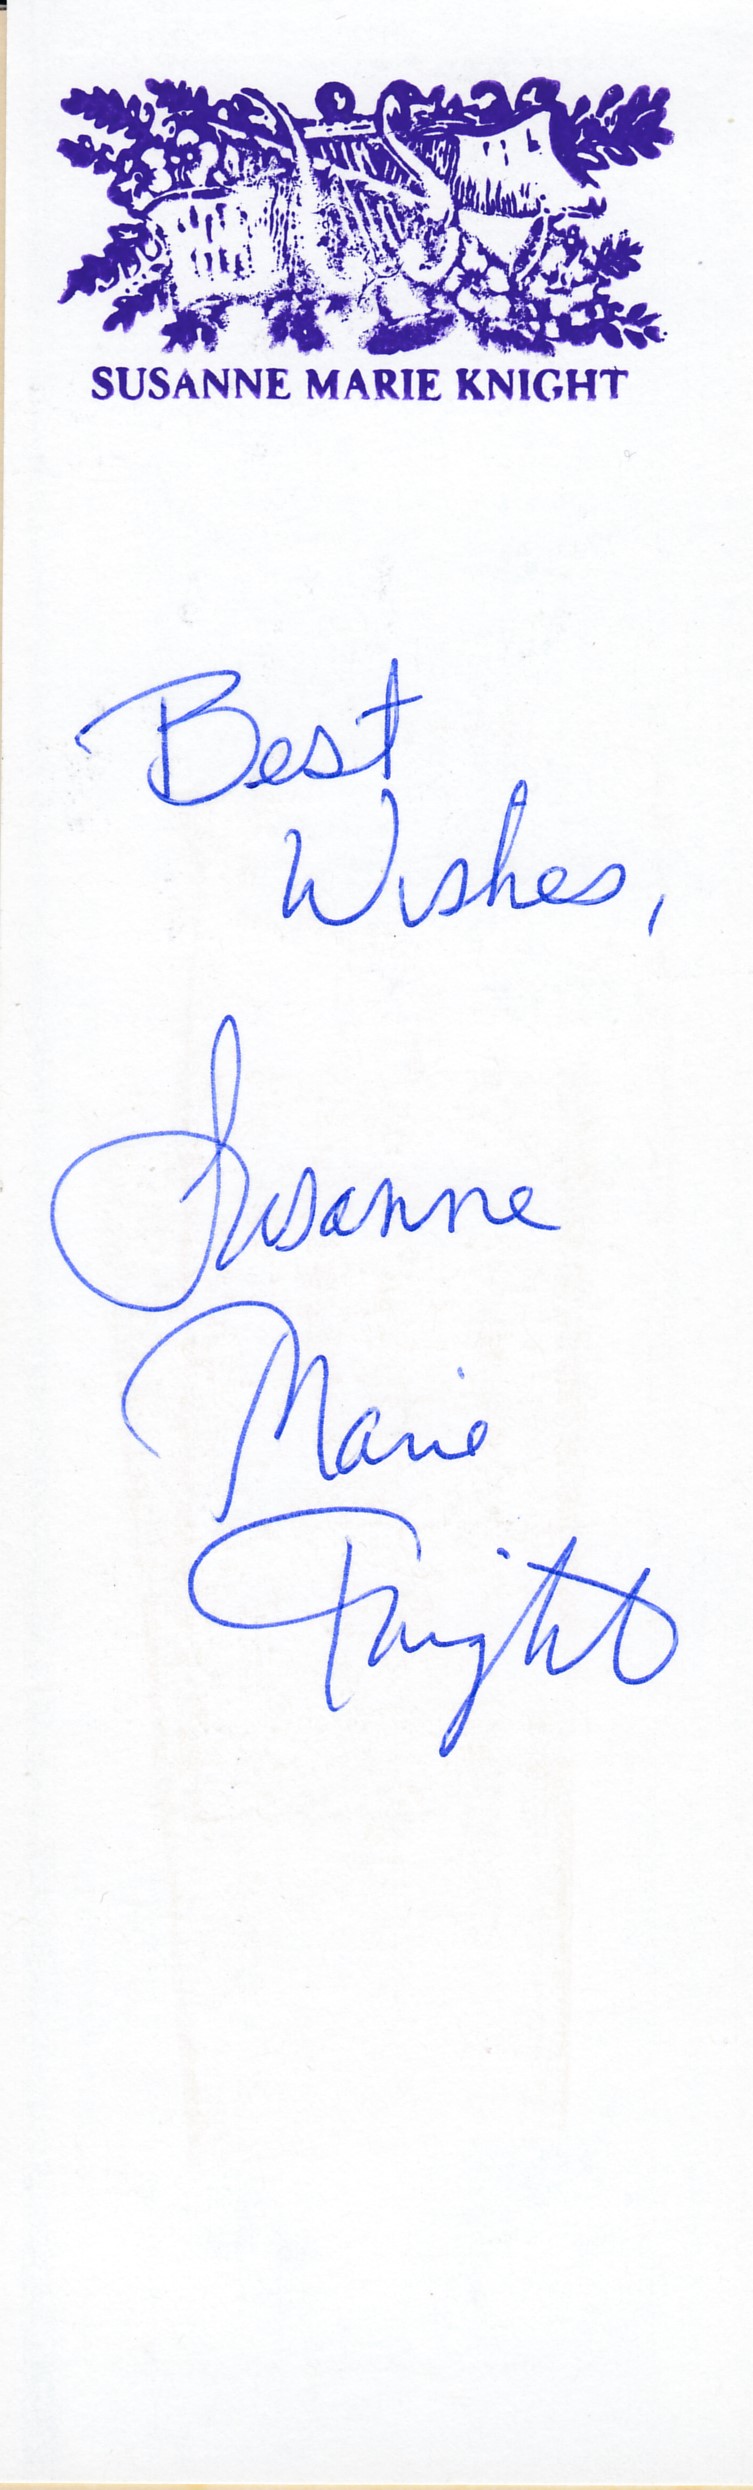 SUSANNE MARIE KNIGHT
Best
Wishes,
Susanne
Marie
Knight